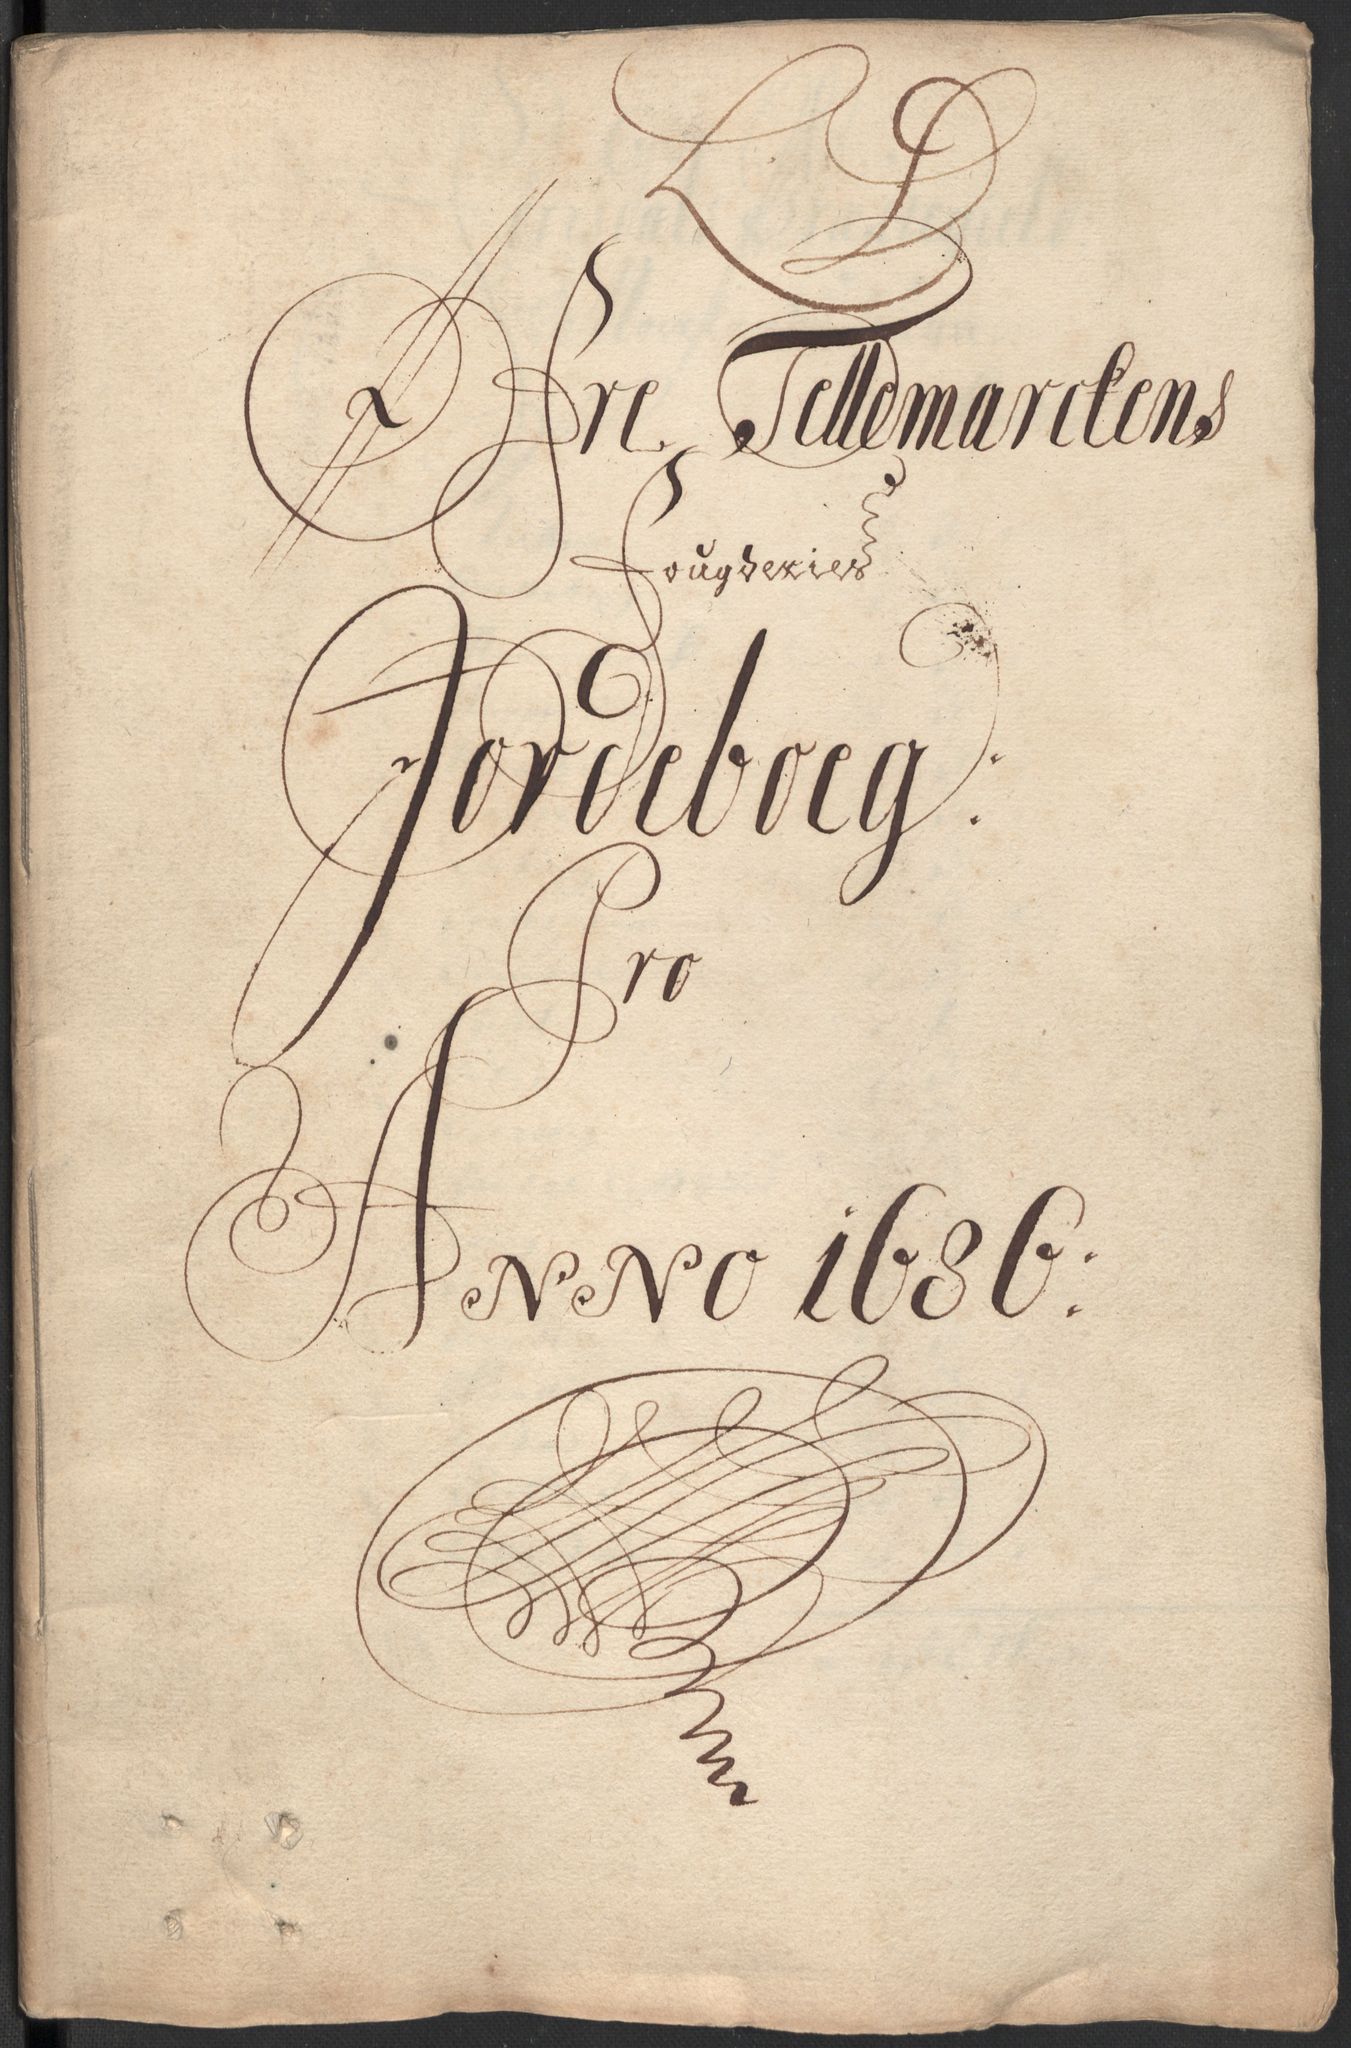 L D
Øfre Tellemarckens
Fougderies
Jordeboeg:
Pro
ANNO 1686: